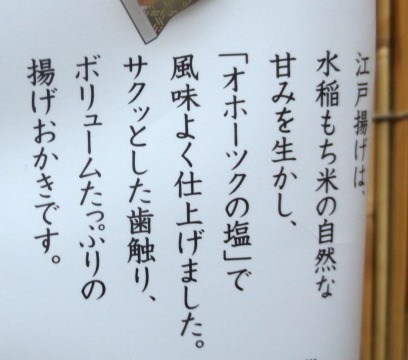 江戸揚げは、
水稲もち米の自然な
甘みを生かし、
「オホーツクの塩」で
風味よく仕上げました。
サクッとした歯触り、
ボリュームたっぷりの
揚げおかきです。